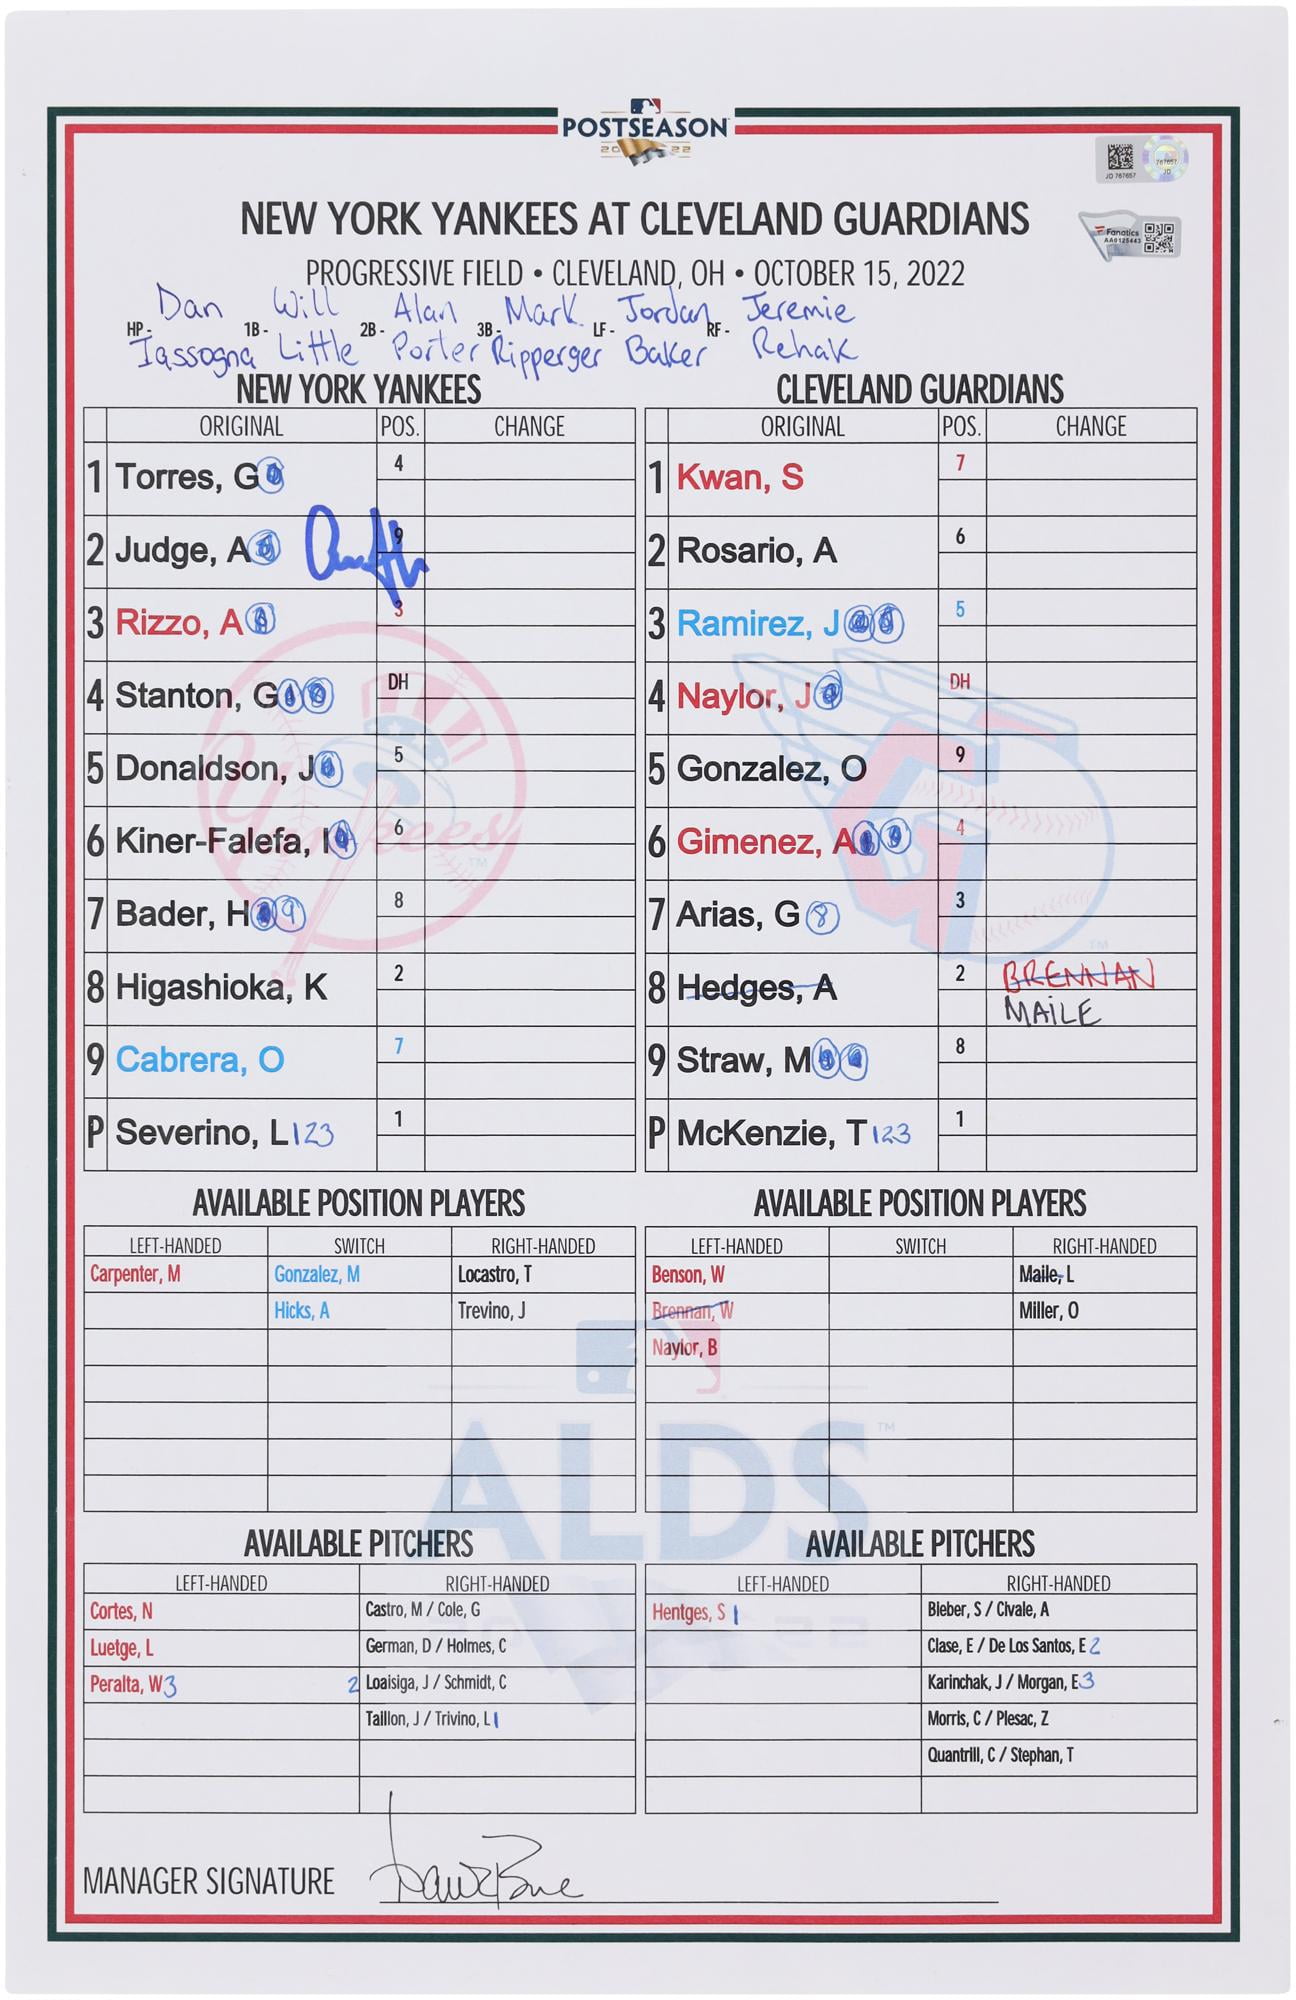 POSTSEASON
2022
JD 767657
767657
JD
Fanatics
AA0125443
NEW YORK YANKEES AT CLEVELAND GUARDIANS
PROGRESSIVE FIELD • CLEVELAND, OH • OCTOBER 15, 2022
HP - Dan Iassogna 1B - Will Little 2B - Alan Porter 3B - Mark Ripperger LF - Jordan Baker RF - Jeremie Rehak
NEW YORK YANKEES
ORIGINAL POS. CHANGE
1 Torres, G 4
2 Judge, A 9
3 Rizzo, A 3
4 Stanton, G DH
5 Donaldson, J 5
6 Kiner-Falefa, I 6
7 Bader, H 9 8
8 Higashioka, K 2
9 Cabrera, O 7
P Severino, L 123 1
CLEVELAND GUARDIANS
ORIGINAL POS. CHANGE
1 Kwan, S 7
2 Rosario, A 6
3 Ramirez, J 5
4 Naylor, J DH
5 Gonzalez, O 9
6 Gimenez, A 4
7 Arias, G 8 3
8 Hedges, A 2 BRENNAN
MAILE
9 Straw, M 8
P McKenzie, T 123 1
AVAILABLE POSITION PLAYERS
LEFT-HANDED SWITCH RIGHT-HANDED
Carpenter, M Gonzalez, M Locastro, T
Hicks, A Trevino, J
AVAILABLE POSITION PLAYERS
LEFT-HANDED SWITCH RIGHT-HANDED
Benson, W Maile, L
Brennan, W Miller, O
Naylor, B
Yankees
ALDS
AVAILABLE PITCHERS
LEFT-HANDED RIGHT-HANDED
Cortes, N Castro, M / Cole, G
Luetge, L German, D / Holmes, C
Peralta, W 3 2 Loaisiga, J / Schmidt, C
Taillon, J / Trivino, L 1
AVAILABLE PITCHERS
LEFT-HANDED RIGHT-HANDED
Hentges, S 1 Bieber, S / Civale, A
Clase, E / De Los Santos, E 2
Karinchak, J / Morgan, E 3
Morris, C / Plesac, Z
Quantrill, C / Stephan, T
MANAGER SIGNATURE